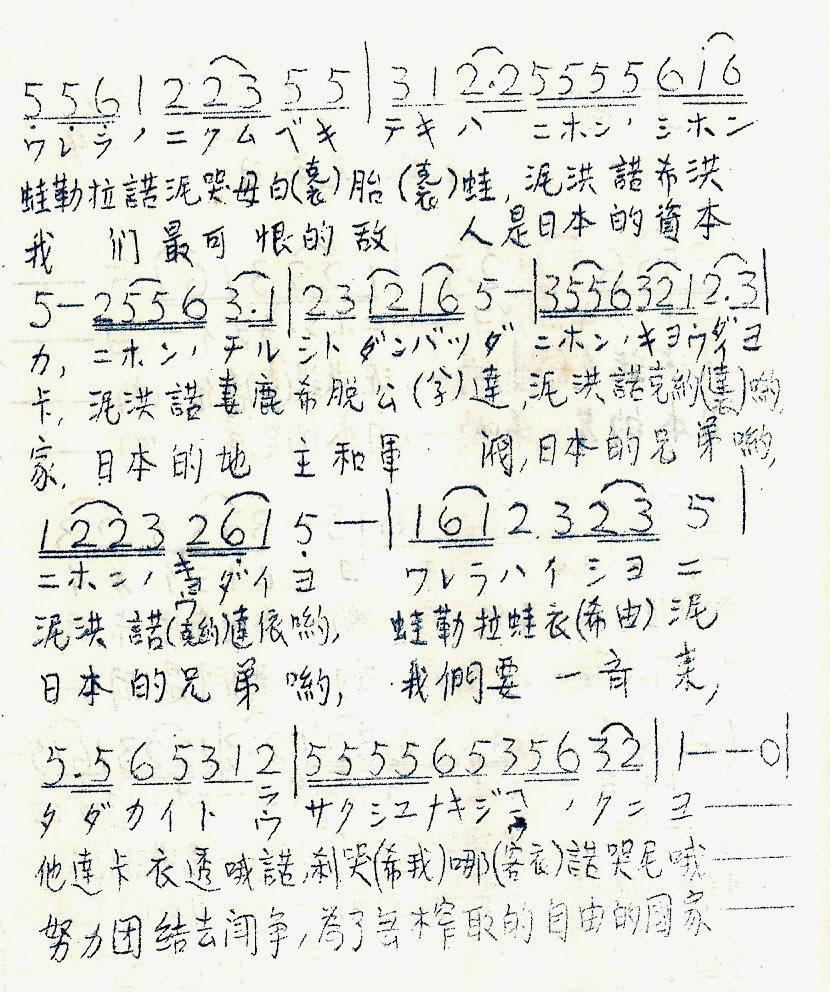 5 5 6 1 2 2 3 5 5 | 3 1 2.2 5 5 5 5 6 i 6
ウレラ ノ ニクム ベキ テキ ハ ニホン ノ シホン
蛙勒拉諾泥哭母白(裏)胎(裏)蛙, 泥洪諾希洪
我们最可恨的敌人是日本的資本
5 — 2 5 5 6 3.1 | 2 3 1 2 1 6 5 — | 3 5 5 6 3 2 1 2.3 |
カ, ニホン ノ チル シト ダンバツ ダ ニホン ノ キヨウダイヨ
卡, 泥洪諾妻鹿希脱公()達, 泥洪諾克約(達)喲,
家, 日本的地主和軍閥, 日本的兄弟喲,
1 2 2 3 2 6 1 5 — | 1 6 1 2. 3 2 3 5 |
ニホン ノ キョウダイ ヨ ワレラハイシヨ ニ
泥洪諾(克約)達依喲, 蛙勒拉蛙衣(希由)泥
日本的兄弟喲, 我們要一音来,
5.5 6 5 3 1 2 | 5 5 5 5 6 5 3 5 6 3 2 | 1 — — 0 |
タダカイトラウ サクシユナキジユウ ノ クニ ヨ
他達卡衣透哦諾, 刹哭(希我)哪(客衣)諾哭尼哦
努力团结去闘争, 為了無榨取的自由的国家